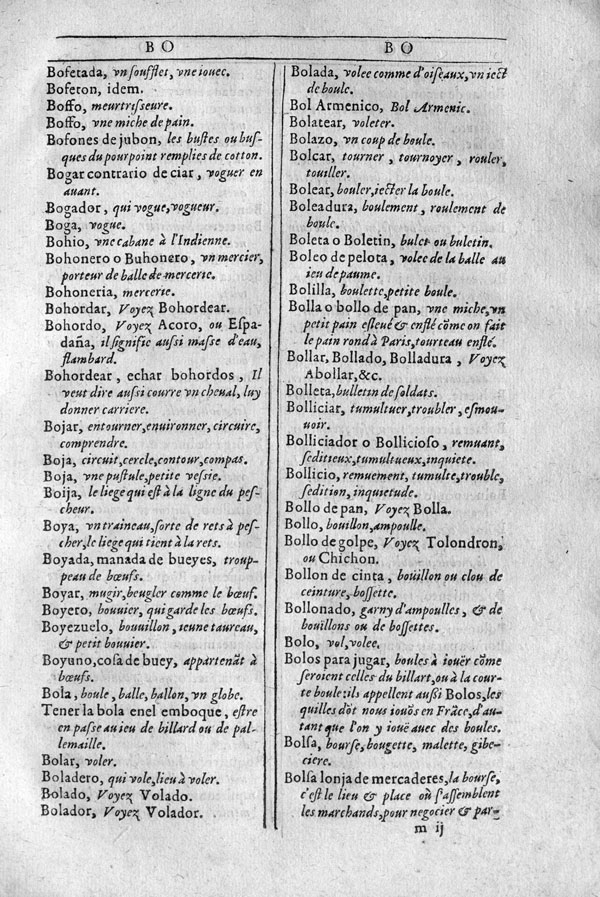 BO
Bofetada, vn soufflet, vne iouee.
Bofeton, idem.
Boffo, meurtrisseure.
Boffo, vne miche de pain.
Bofones de jubon, les bustes ou bus-
ques du pourpoint remplies de cotton.
Bogar contrario de ciar, voguer en
auant.
Bogador, qui vogue, vogueur.
Boga, vogue.
Bohio, vne cabane à l'Indienne.
Bohonero o Buhonero, vn mercier,
porteur de balle de mercerie.
Bohoneria, mercerie.
Bohordar, Voyez Bohordear.
Bohordo, Voyez Acoro, ou Eſpa-
daña, il signifie aussi masse d'eau,
flambard.
Bohordear, echar bohordos, Il
veut dire aussi courre vn cheual, luy
donner carriere.
Bojar, entourner, enuironner, circuire,
comprendre.
Boja, circuit, cercle, contour, compas.
Boja, vne pustule, petite vessie.
Boija, le liege qui est à la ligne du pes-
cheur.
Boya, vn traineau, sorte de rets à pes-
cher, le liege qui tient à la rets.
Boyada, manada de bueyes, troup-
peau de bœufs.
Boyar, mugir, beugler comme le bœuf.
Boyero, bouuier, qui garde les bœufs.
Boyezuelo, bouuillon, ieune taureau,
& petit bouuier.
Boyuno, coſa de buey, appartenāt à
bœufs.
Bola, boule, balle, ballon, vn globe.
Tener la bola enel emboque, estre
en passe au ieu de billard ou de pal-
lemaille.
Bolar, voler.
Boladero, qui vole, lieu à voler.
Bolado, Voyez Volado.
Bolador, Voyez Volador.
BO
Bolada, volee comme d'oiseaux, vn iect
de boule.
Bol Armenico, Bol Armenic.
Bolatear, voleter.
Bolazo, vn coup de boule.
Bolcar, tourner, tournoyer, rouler,
touiller.
Bolear, bouler, iecter la boule.
Boleadura, boulement, roulement de
boule.
Boleta o Boletin, bulet ou buletin.
Boleo de pelota, volee de la balle au
ieu de paume.
Bolilla, boulette, petite boule.
Bolla o bollo de pan, vne miche, vn
petit pain esleué & enflé cōme on fait
le pain rond à Paris, tourteau enflé.
Bollar, Bollado, Bolladura, Voyez
Abollar, &c.
Bolleta, bulletin de soldats.
Bolliciar, tumultuer, troubler, esmou-
uoir.
Bolliciador o Bollicioſo, remuant,
seditieux, tumultueux, inquiete.
Bollicio, remuement, tumulte, trouble,
sedition, inquietude.
Bollo de pan, Voyez Bolla.
Bollo, bouillon, ampoulle.
Bollo de golpe, Voyez Tolondron,
ou Chichon.
Bollon de cinta, boüillon ou clou de
ceinture, bossette.
Bollonado, garny d'ampoulles, & de
bouillons ou de bossettes.
Bolo, vol, volee.
Bolos para jugar, boules à ioüer cōme
seroient celles du billart, ou à la cour-
te boule: ils appellent aussi Bolos, les
quilles dōt nous ioüōs en Frāce, d'au-
tant que l'on y ioüe auec des boules.
Bolſa, bourse, bougette, malette, gibe-
ciere.
Bolſa lonja de mercaderes, la bourse,
c'est le lieu & place où s'assemblent
les marchands, pour negocier & par-
m ij